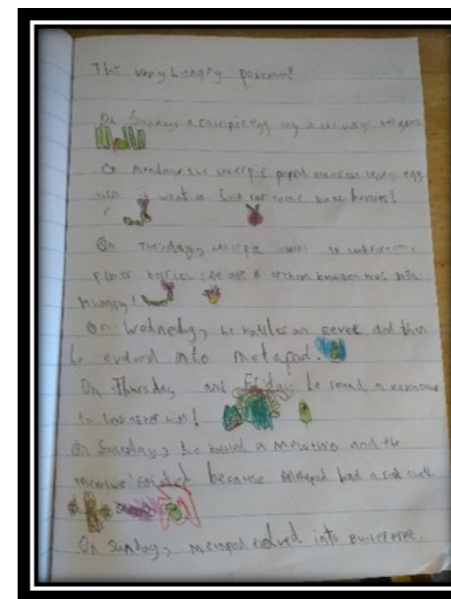 The very hungry pokemon!
On Sunday a caterpie egg lay in the
On Monday the caterpie poped out of the egg
then it went to look for some berries!
On Tuesday, caterpie went to look for some
berries he ate 8 of them but was still
hungry!
On Wednesday, he battles an eevee and then
he evolved into metapod.
On Thursday and Friday he found a
to look after him!
On Saturday, he battled a Mewtwo and the
mewtwo fainted because Metapod had a shell.
On Sunday, metapod evolved into Butterfree.